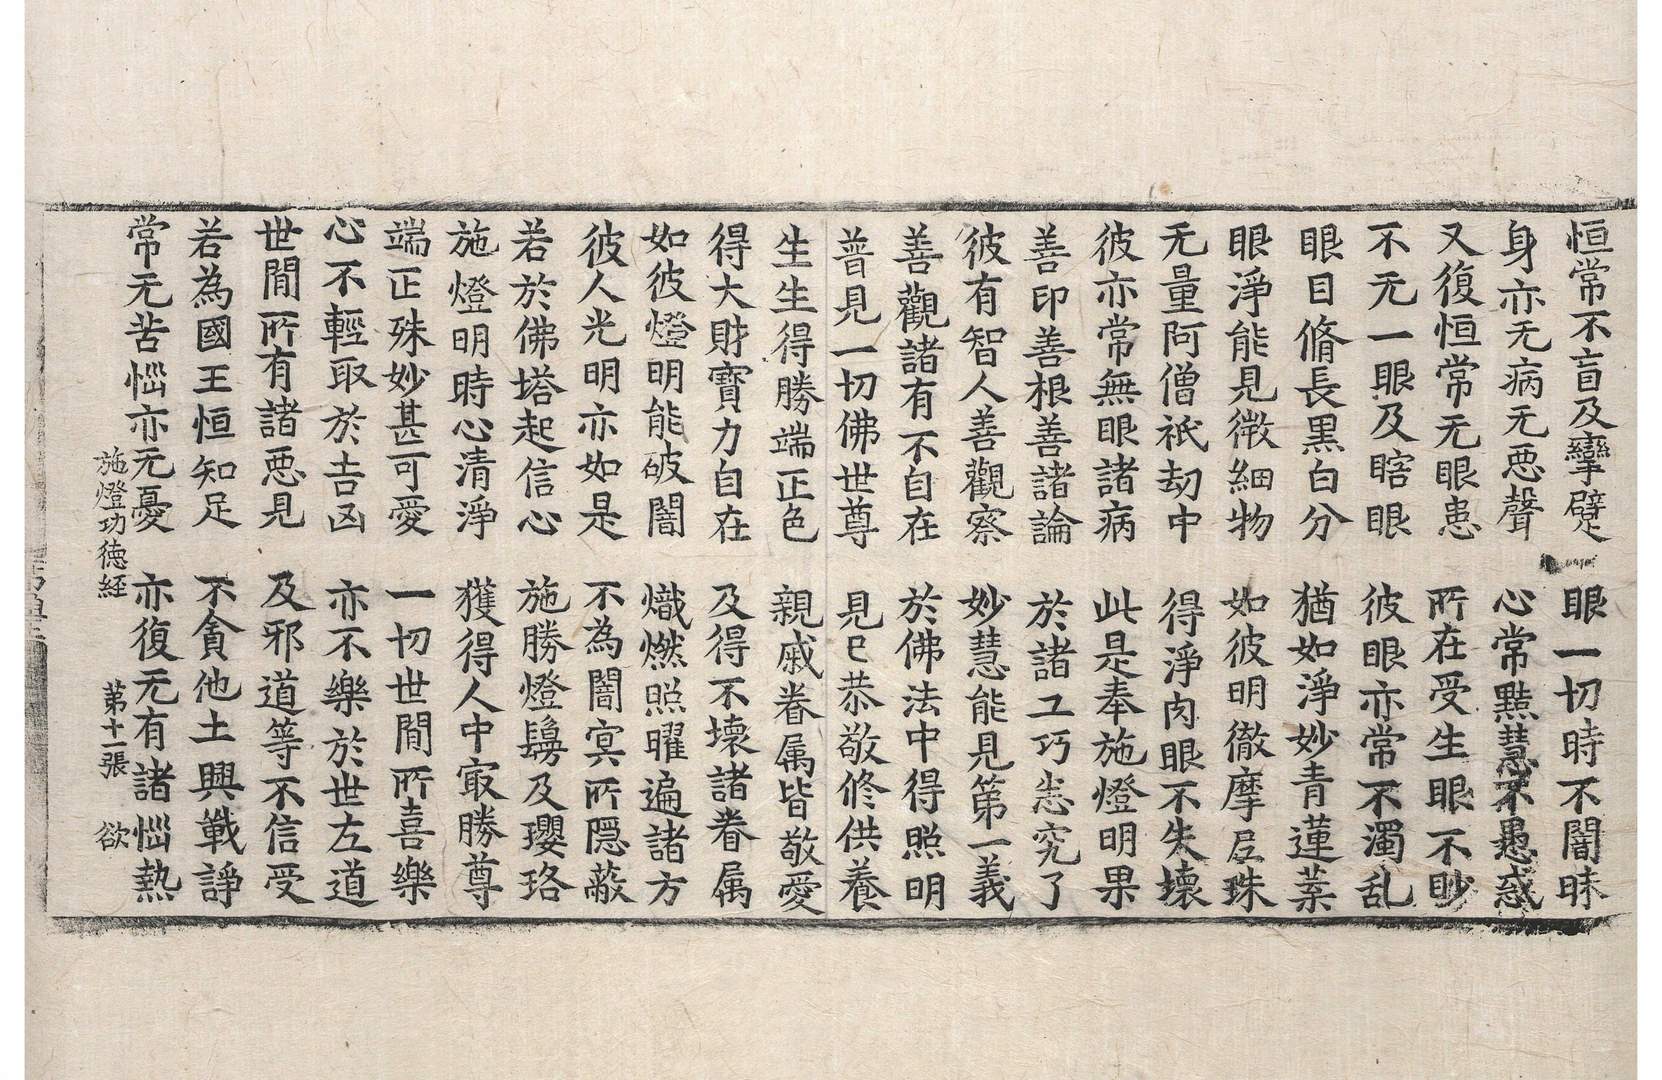 恒常不盲及攣躄 眼一切時不闇昧
身亦无病无惡聲 心常點慧不愚惑
又復恒常无眼患 所在受生眼不眇
不无一眼及瞎眼 彼眼亦常不濁乱
眼目脩長黒白分 猶如淨妙青蓮葉
眼淨能見微細物 如彼明徹摩尼珠
无量阿僧祇劫中 得淨肉眼不失壞
彼亦常無眼諸病 此是奉施燈明果
善印善根善諸論 於諸工巧悉究了
彼有智人善觀察 妙慧能見第一義
善觀諸有不自在 於佛法中得照明
普見一切佛世尊 見已恭敬修供養
生生得勝端正色 親戚眷属皆敬愛
得大財寶力自在 及得不壞諸眷属
如彼燈明能破闇 熾燃照曜遍諸方
彼人光明亦如是 不為闇冥所隠蔽
若於佛塔起信心 施勝燈鬘及瓔珞
施燈明時心清淨 獲得人中㝡勝尊
端正殊妙甚可愛 一切世間所喜樂
心不輕取於吉凶 亦不樂於世左道
世間所有諸惡見 及邪道等不信受
若為國王恒知足 不貪他土興戰諍
常无苦惱亦无憂 亦復无有諸惱熱
施燈功德経 第十一張 欲